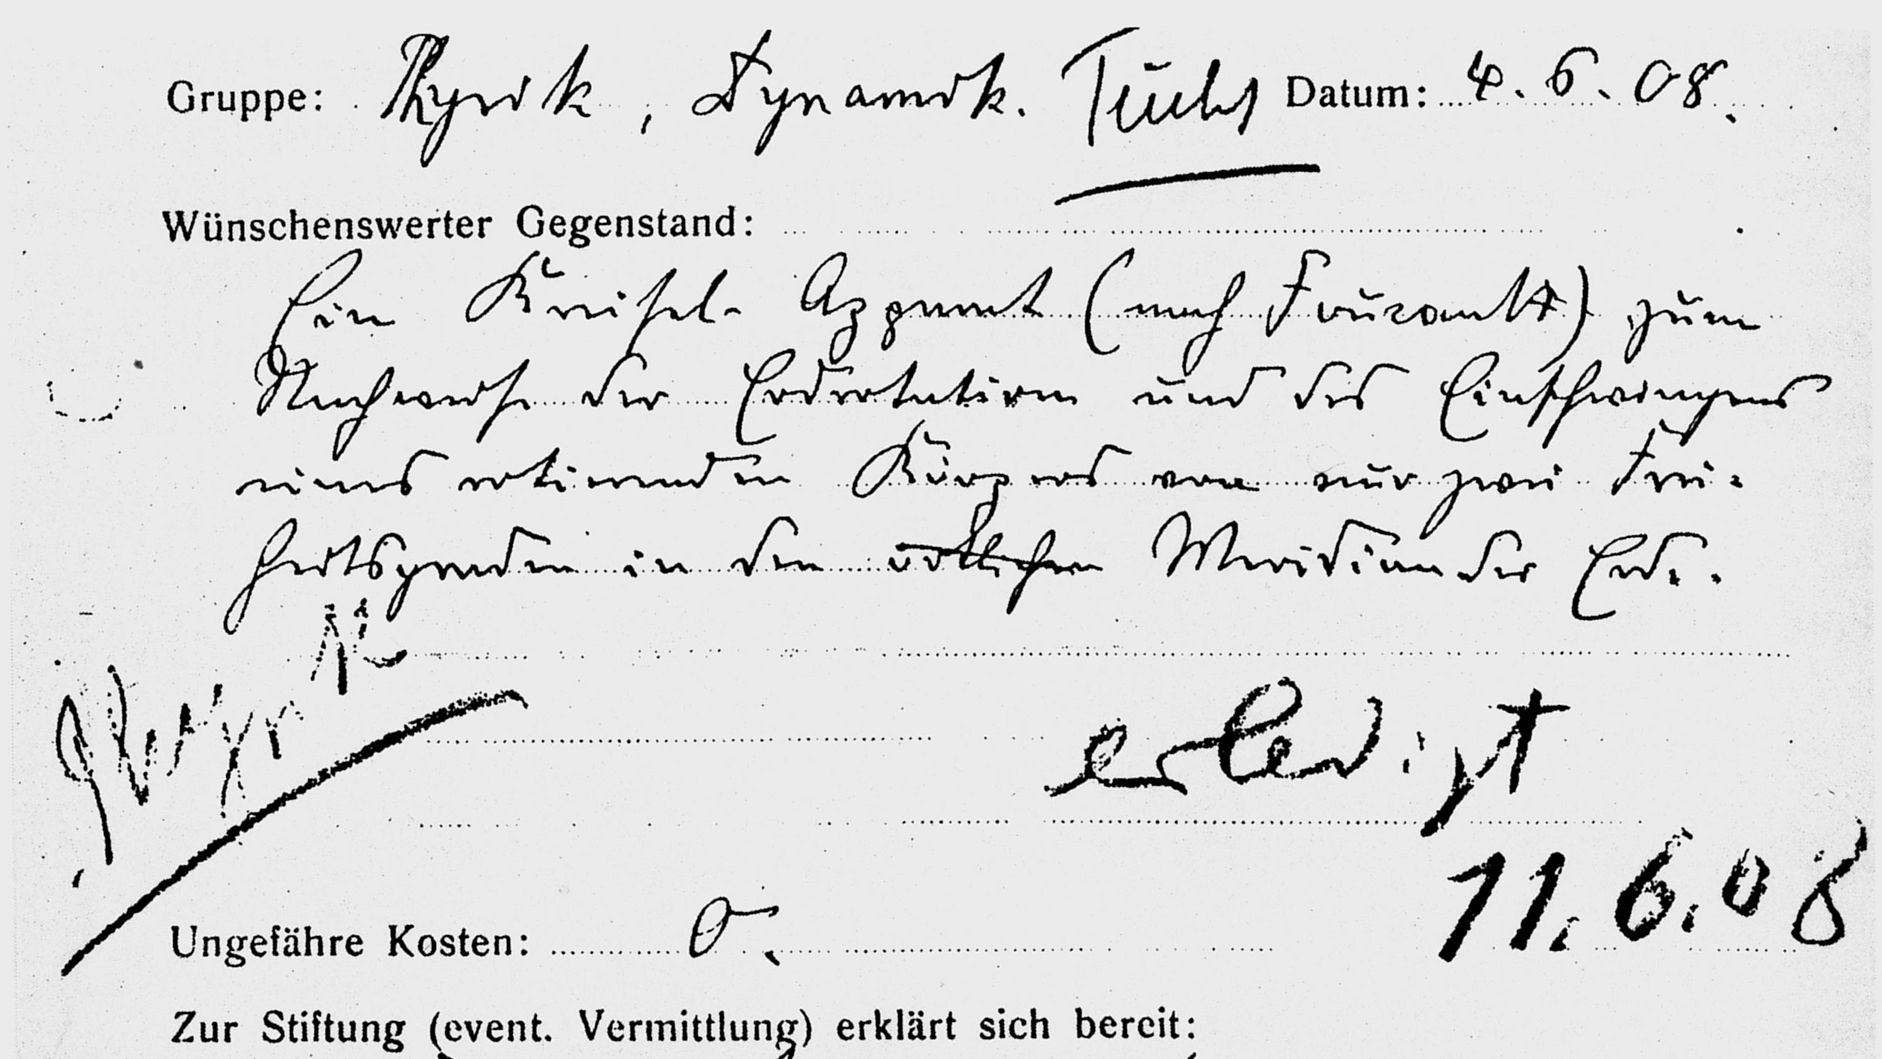 Gruppe: Physik, Dynamik. Fuchs Datum: 4.6.08.
Wünschenswerter Gegenstand:
Ein Kreisel-Apparat (nach Foucault) zum
Nachweise der Erdrotation und des Einschwingens
eines rotierenden Körpers von nur zwei Frei-
heitsgraden in den örtlichen Meridian der Erde.
erledigt
11.6.08
Ungefähre Kosten: 0.
Zur Stiftung (event. Vermittlung) erklärt sich bereit: